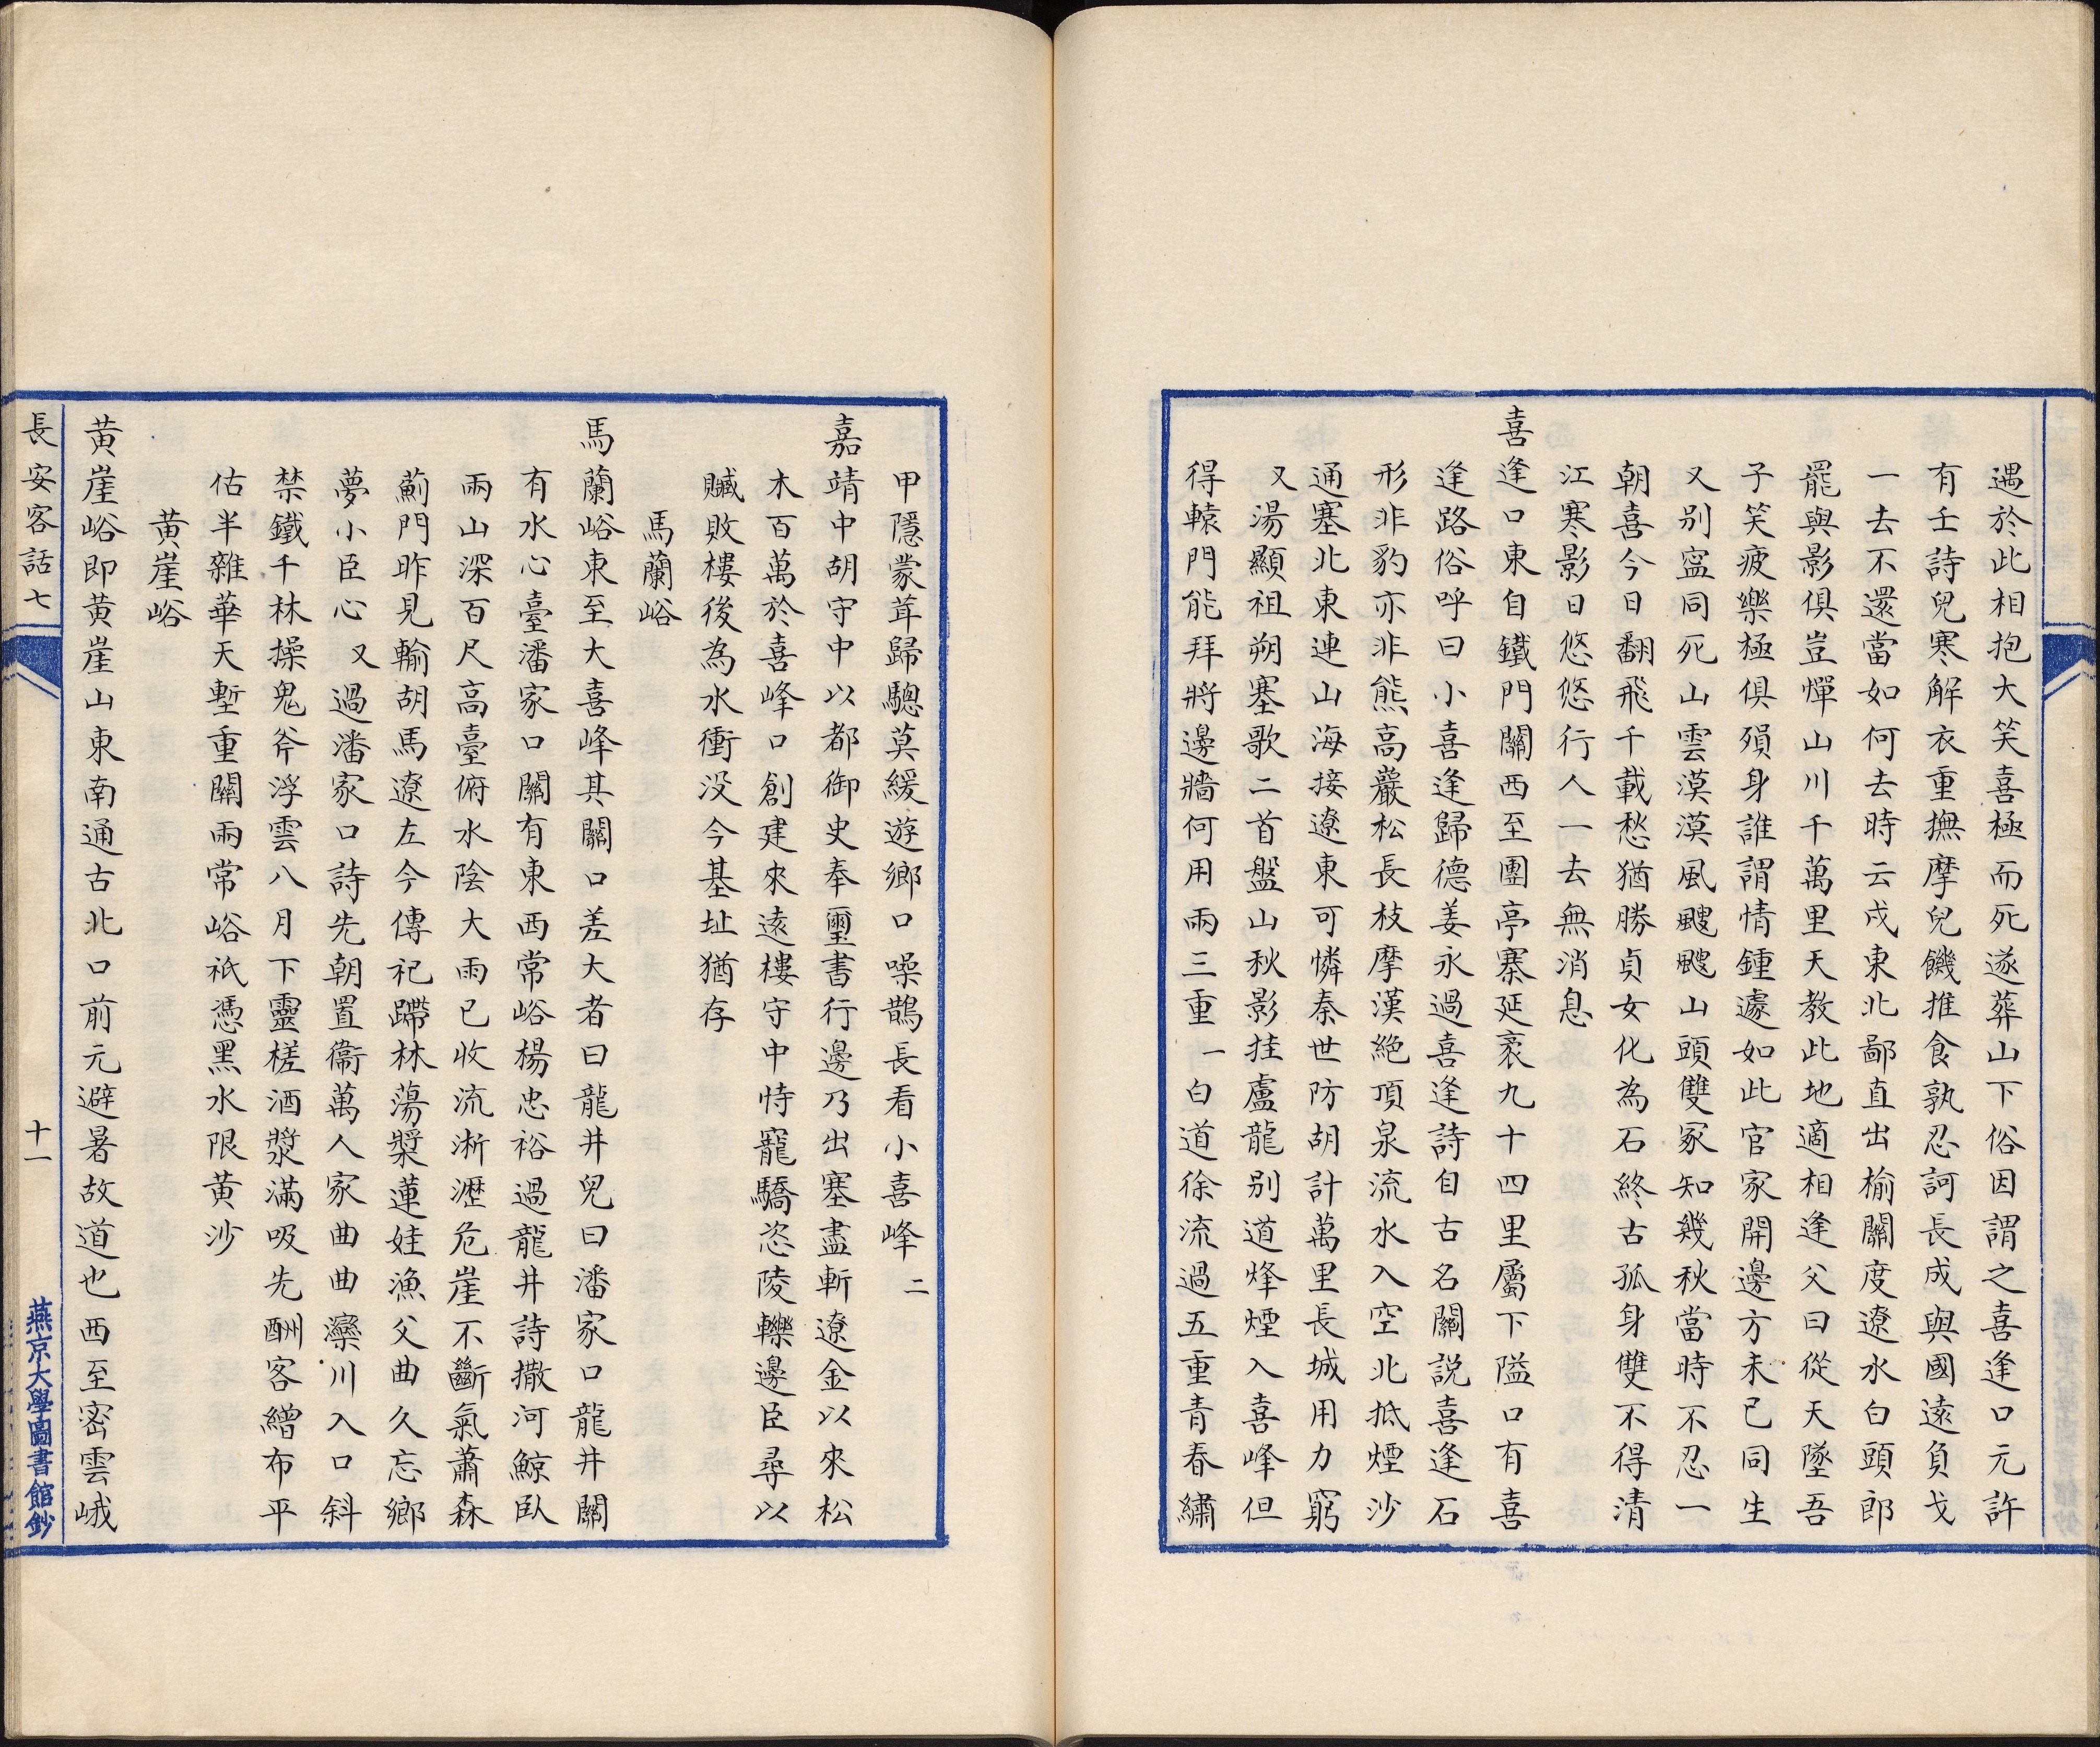 遇於此相抱大笑喜極而死遂葬山下俗因謂之喜逢口元許
有壬詩兒寒解衣重撫摩兒饑推食孰忍訶長成與國遠負戈
一去不還當如何去時云戍東北鄙直出榆關度遼水白頭郎
罷與影俱豈憚山川千萬里天教此地適相逢父曰從天墜吾
子笑疲樂極俱殞身誰謂情鍾遽如此官家開邊方未已同生
又别寍同死山雲漠漠風颼颼山頭雙冢知幾秋當時不忍一
朝喜今日翻飛千載愁猶勝貞女化為石終古孤身雙不得清
江寒影日悠悠行人一去無消息
喜逢口東自鐵門關西至團亭寨延袤九十四里屬下隘口有喜
逢路俗呼曰小喜逢歸德姜永過喜逢詩自古名關説喜逢石
形非豹亦非熊高巖松長枝摩漢絶頂泉流水入空北抵煙沙
通塞北東連山海接遼東可憐秦世防胡計萬里長城用力窮
又湯顯祖朔塞歌二首盤山秋影挂盧龍别道烽煙入喜峰但
得轅門能拜將邊牆何用兩三重一白道徐流過五重青春繡
甲隱蒙茸歸驄莫緩遊鄉口噪鵲長看小喜峰二
嘉靖中胡守中以都御史奉璽書行邊乃出塞盡斬遼金以來松
木百萬於喜峰口創建來遠樓守中恃寵驕恣陵轢邊臣尋以
贓敗樓後為水衝没今基址猶存
馬蘭峪
馬蘭峪東至大喜峰其關口差大者曰龍井兒曰潘家口龍井關
有水心臺潘家口關有東西常峪楊忠裕過龍井詩撒河鯨臥
兩山深百尺高臺俯水陰大雨已收流淅瀝危崖不斷氣蕭森
薊門昨見輸胡馬遼左今傳祀蹛林蕩槳蓮娃漁父曲久忘鄉
夢小臣心又過潘家口詩先朝置衞萬人家曲曲灤川入口斜
禁鐵千林操鬼斧浮雲八月下靈槎酒漿滿吸先酬客繒布平
估半雜華天塹重關兩常峪祇憑黑水限黄沙
黄崖峪
黄崖峪即黄崖山東南通古北口前元避暑故道也西至密雲峨
長安客話七
十一
燕京大學圖書館鈔